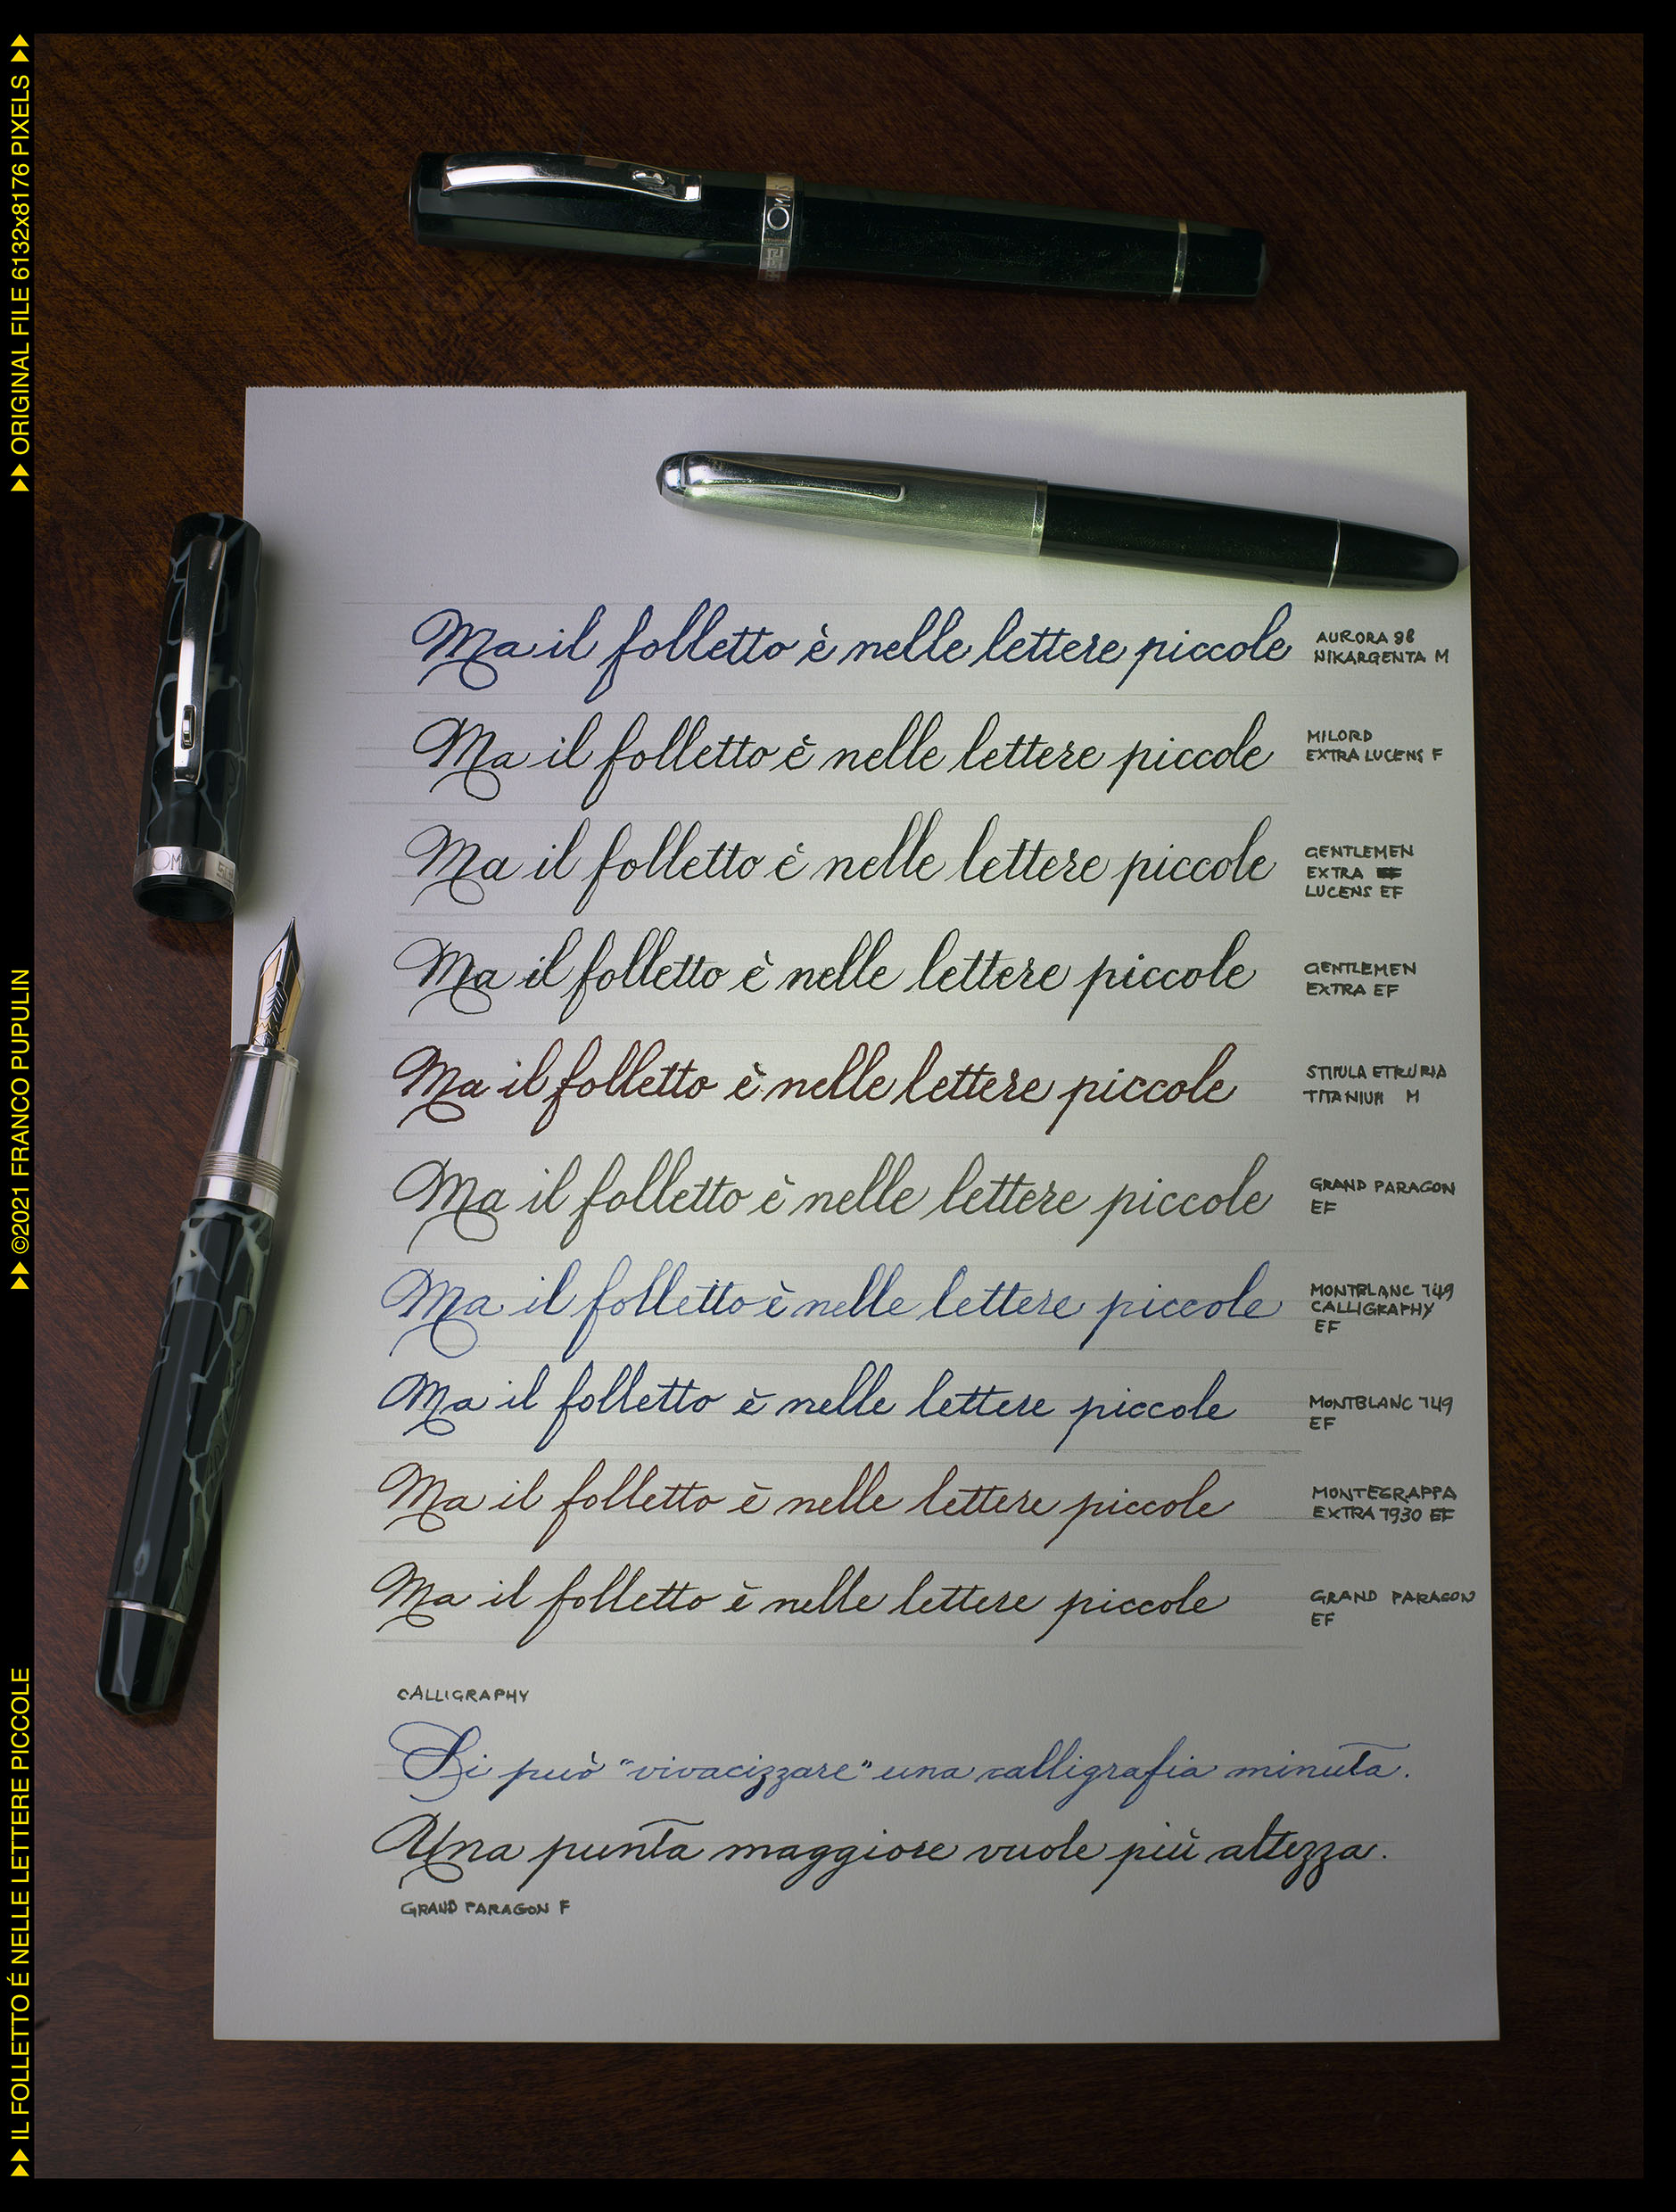 OM
Ma il folletto è nelle lettere piccole
AURORA 98
NIKARGENTA M
Ma il folletto è nelle lettere piccole
MILORD
EXTRA LUCENS F
Ma il folletto è nelle lettere piccole
GENTLEMEN
EXTRA
LUCENS EF
Ma il folletto è nelle lettere piccole
GENTLEMEN
EXTRA EF
Ma il folletto è nelle lettere piccole
STIPULA ETRURIA
TITANIUM M
Ma il folletto è nelle lettere piccole
GRAND PARAGON
EF
Ma il folletto è nelle lettere piccole
MONTBLANC 149
CALLIGRAPHY
EF
Ma il folletto è nelle lettere piccole
MONTBLANC 149
EF
Ma il folletto è nelle lettere piccole
MONTEGRAPPA
EXTRA 1930 EF
Ma il folletto è nelle lettere piccole
GRAND PARAGON
EF
CALLIGRAPHY
Si può "vivacizzare" una calligrafia minuta.
Una punta maggiore vuole più altezza.
GRAND PARAGON F
IL FOLLETTO É NELLE LETTERE PICCOLE
©2021 FRANCO PUPULIN
ORIGINAL FILE 6132x8176 PIXELS